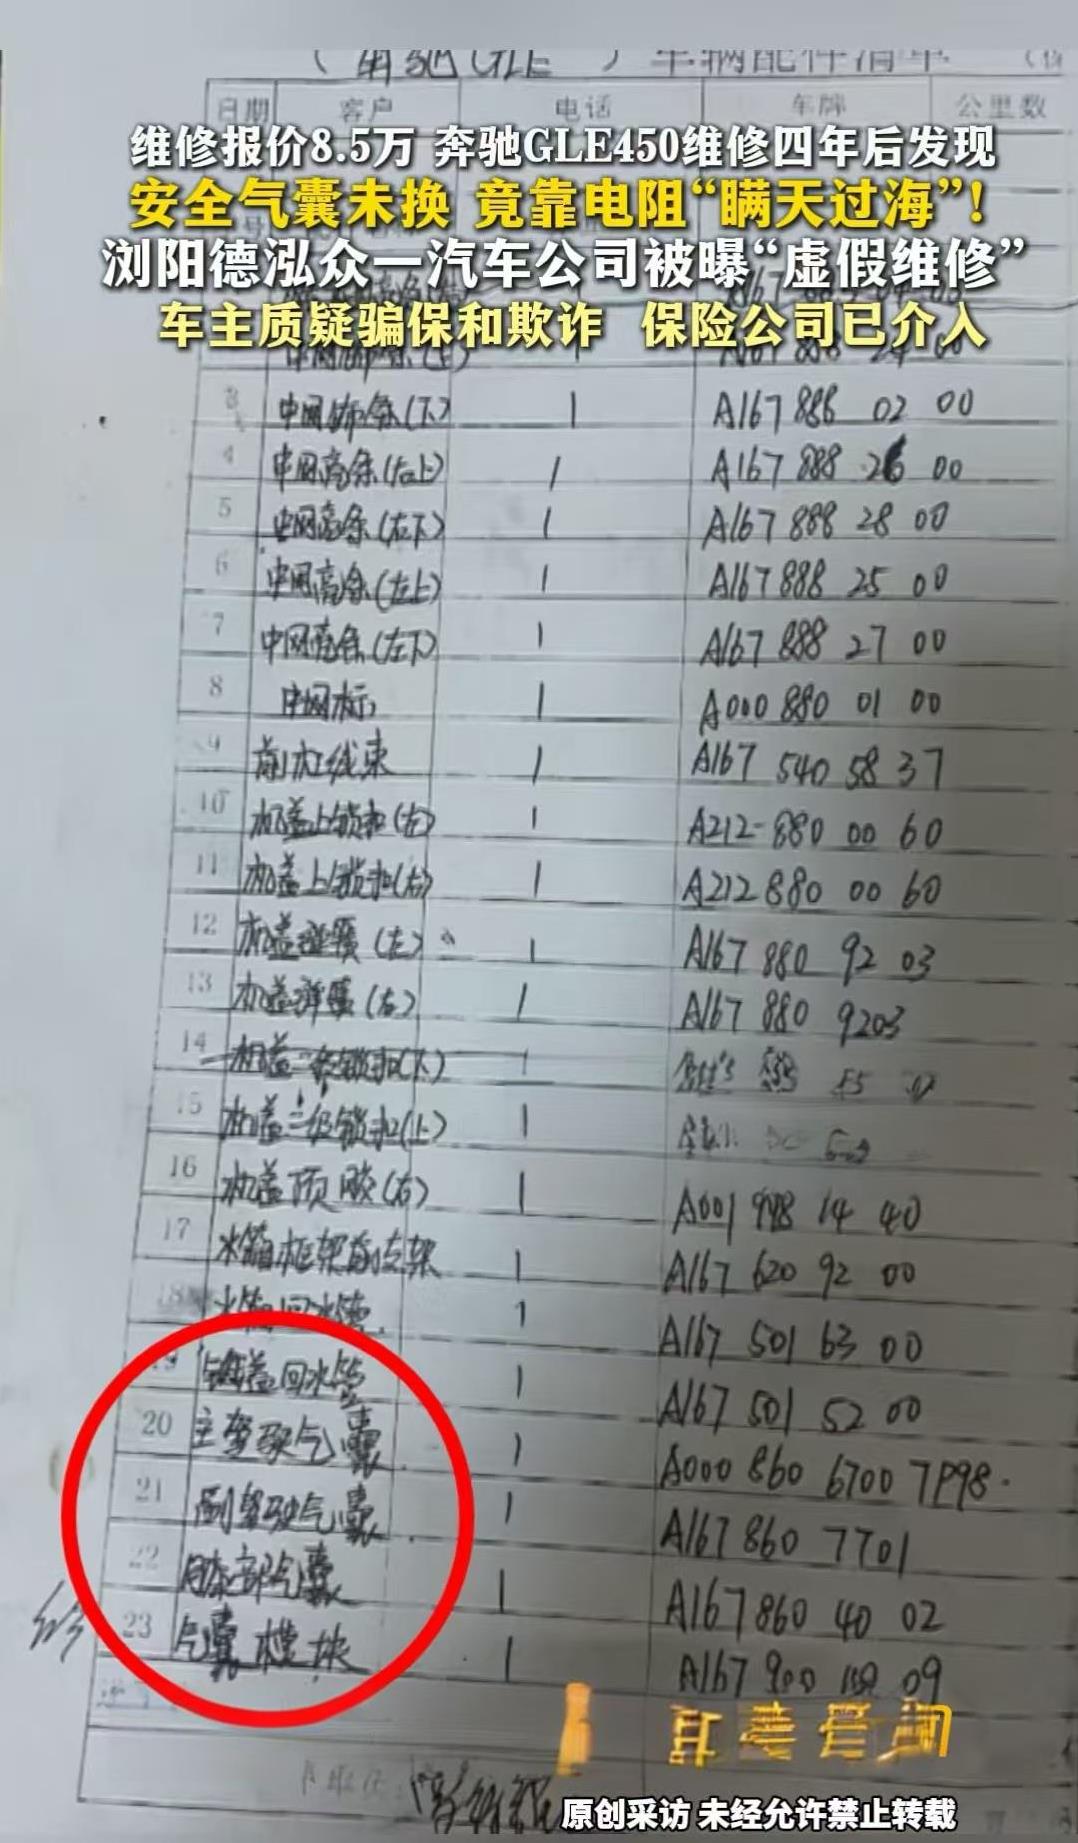 (奔驰GLE ) 车辆配件清单
日期 客户 电话 车牌 公里数
维修报价8.5万 奔驰GLE450维修四年后发现
安全气囊未换 竟靠电阻“瞒天过海”!
浏阳德泓众一汽车公司被曝“虚假维修”
车主质疑骗保和欺诈 保险公司已介入
3 中网饰条(下) 1 A167 888 02 00
4 中网亮条(右上) 1 A167 888 26 00
5 中网亮条(右下) 1 A167 888 28 00
6 中网亮条(左上) 1 A167 888 25 00
7 中网亮条(左下) 1 A167 888 27 00
8 中网标 1 A000 880 01 00
9 前杠线束 1 A167 540 58 37
10 机盖上锁扣(左) 1 A212 880 00 60
11 机盖上锁扣(右) 1 A212 880 00 60
12 机盖(左) 1 A167 880 92 03
13 机盖(右) 1 A167 880 9203
14 机盖二级锁扣(下) 1
15 机盖二级锁扣(上) 1
16 机盖顶胶(右) 1 A001 998 14 40
17 水箱框架前支架 1 A167 620 92 00
18 水箱回水管 1 A167 501 63 00
19 缸盖回水管 1 A167 501 52 00
20 主驾驶气囊 1 A000 860 6700 7P98
21 副驾驶气囊 1 A167 860 7701
22 膝部气囊 1 A167 860 40 02
23 气囊模块 1 A167 900 09
原创采访 未经允许禁止转载